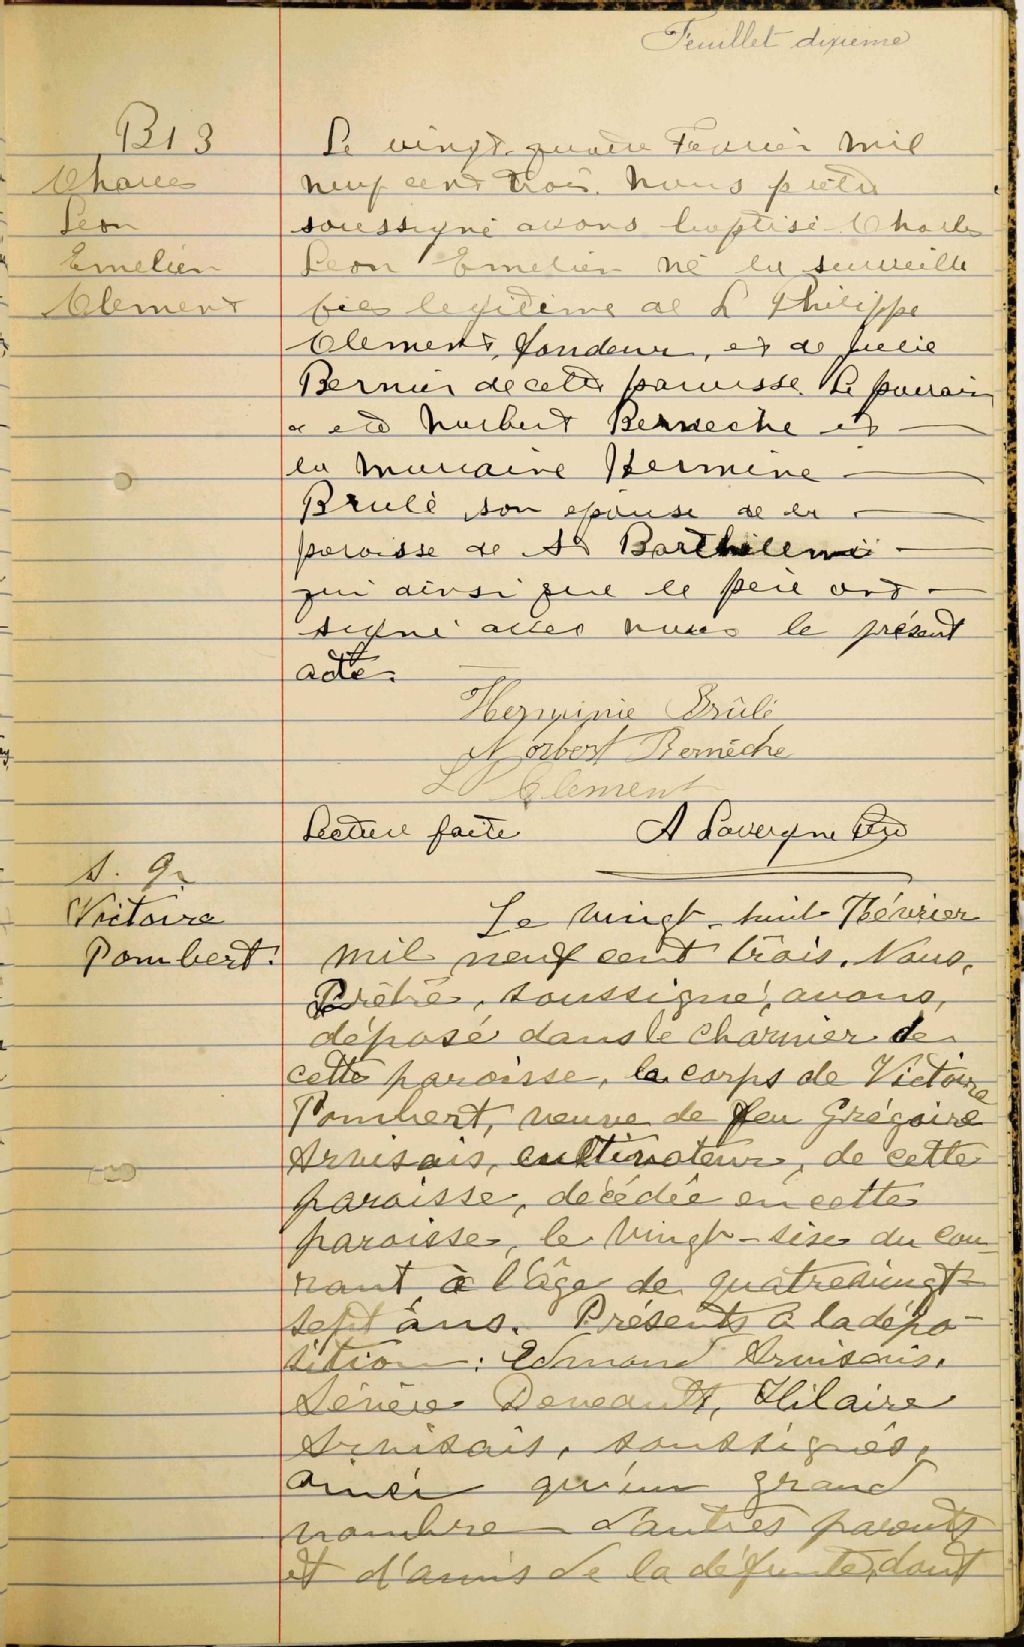 Feuillet dixième
B13
Charles
Leon
Emelien
Clement
Le vingt quatre Fevrier mil
neuf cent trois. Nous prêtre
soussigné avons baptisé Charles
Leon Emelien né la surveille
fils legitime de L Philippe
Clement, fondeur, et de Julie
Bernier de cette paroisse. Le parrain
a été Norbert Berneche et
la marraine Hermine
Brulé son épouse de la
paroisse de St Barthélemi
qui ainsi que le père ont
signé avec nous le présent
acte.
Herminie Brûlé
Norbert Bernêche
L P Clement
Lecture faite A Lavergne Ptre
S. 9.
Victoire
Pombert.
Le vingt-huit Février
mil neuf cent trois. Nous,
Prêtre, soussigné, avons,
déposé dans le charnier de
cette paroisse, le corps de Victoire
Pombert, veuve de feu Grégoire
Arvisais, cultivateur, de cette
paroisse, décédée en cette
paroisse, le vingt-six du cou-
rant à l'âge de quatrevingt-
sept ans. Présents à la dépo-
sition: Edmond Arvisais,
Sévère Deveault, Hilaire
Arvisais, soussignés,
ainsi qu'un grand
nombre d'autres parents
et d'amis de la défunte, dont